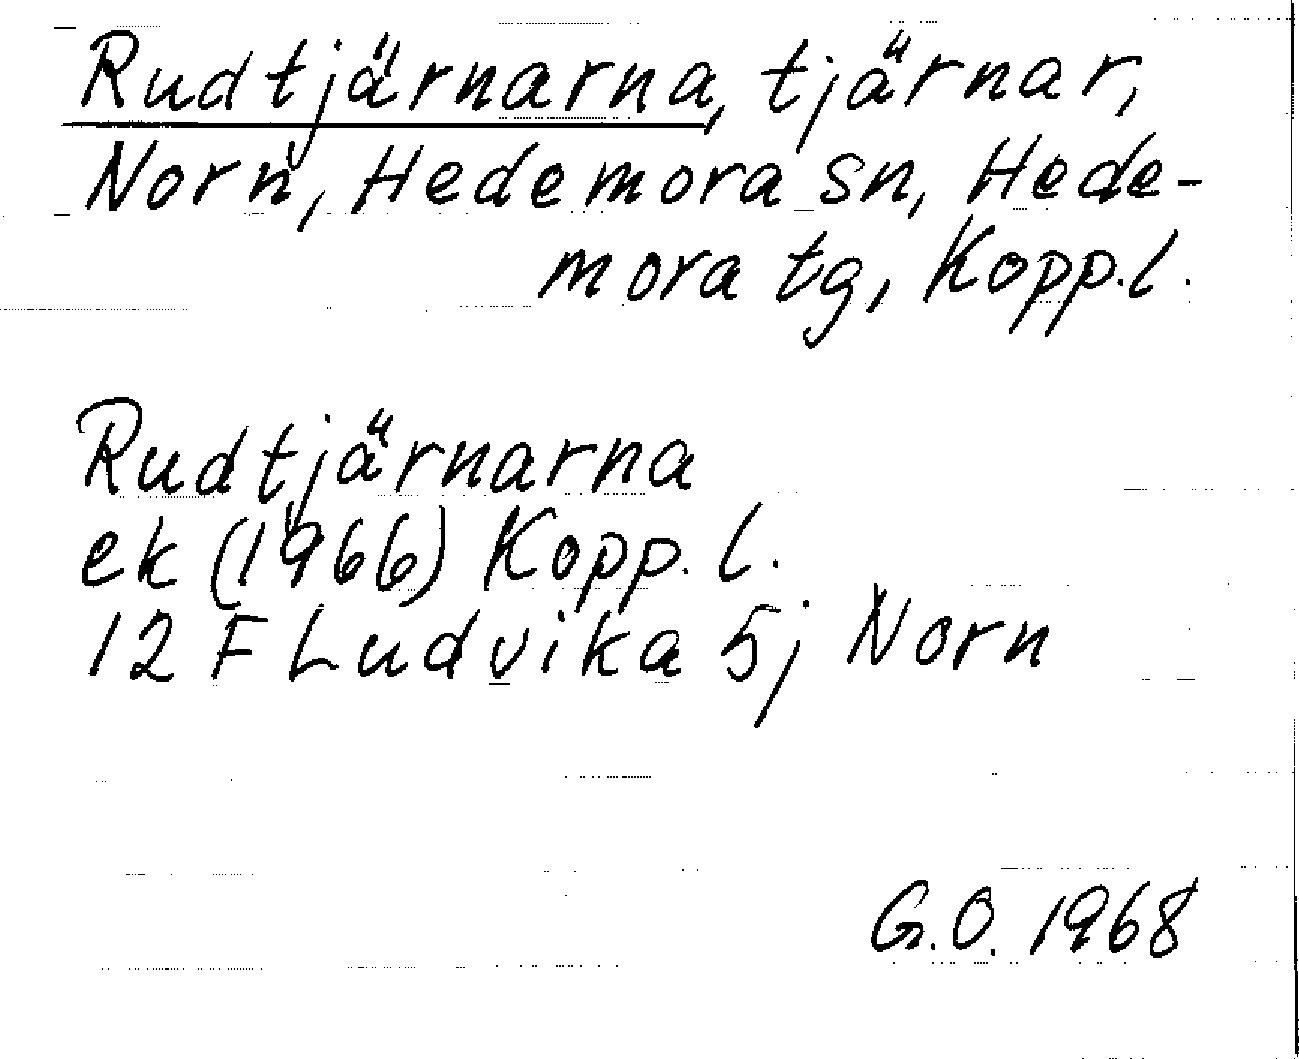 Rudtjärnarna, tjärnar,
Norn, Hedemora sn, Hede-
mora tg, Kopp.l.
Rudtjärnarna
ek (1966) Kopp. l.
12 F Ludvika 5j Norn
G.O. 1968